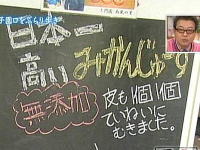 子園口をぶらり歩き
日本一
高い
みかんじゅーす
無添加
皮も1個1個
ていねいに
むきました。